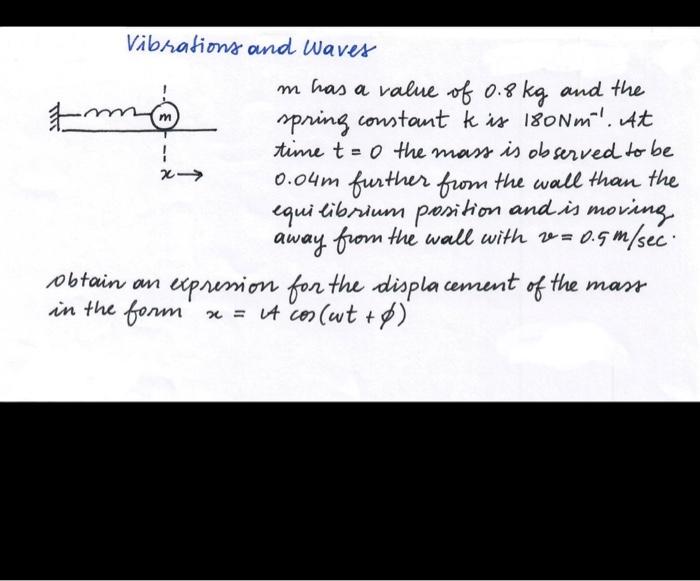 Vibrations and Waves
m has a value of 0.8 kg and the
m
spring constant k is 180Nm⁻¹. At
time t = 0 the mass is observed to be
x →
0.04m further from the wall than the
equilibrium position and is moving
away from the wall with v = 0.5 m/sec.
obtain an expression for the displacement of the mass
in the form x = A cos(ωt + φ)